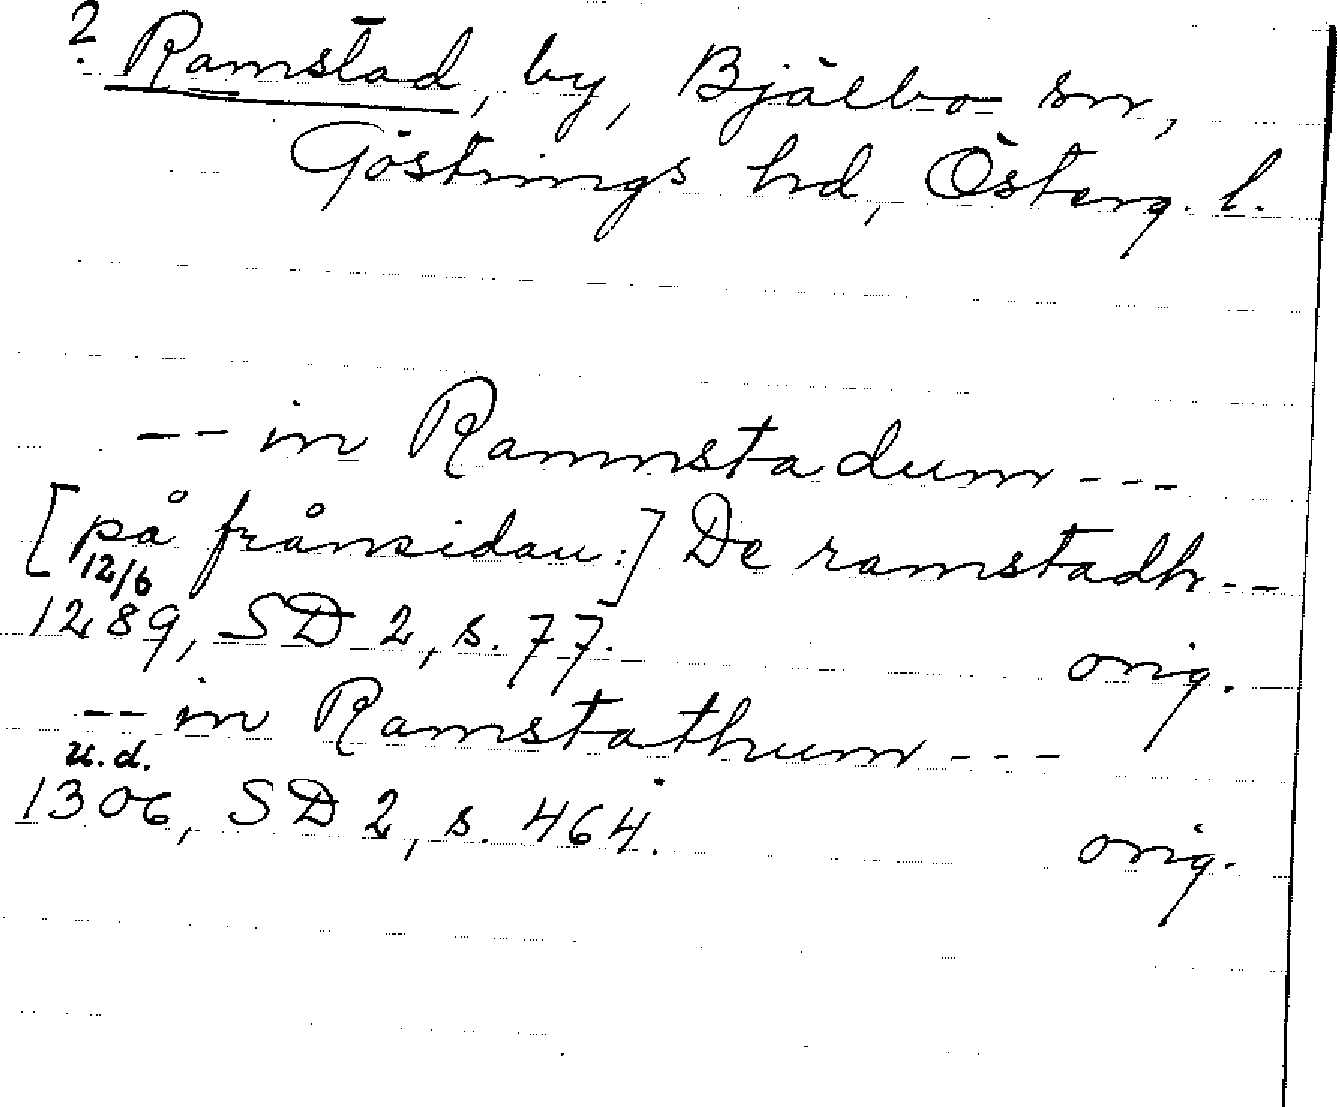 ? Ramstad, by, Bjälbo sn,
Göstrings hd, Österg. l.
-- in Rammstadum ---
[på frånsidan:] De ramstadh--
12/6
1289, SD 2, s. 77. orig.
-- in Ramstathum ---
u.d.
1306, SD 2, s. 464. orig.